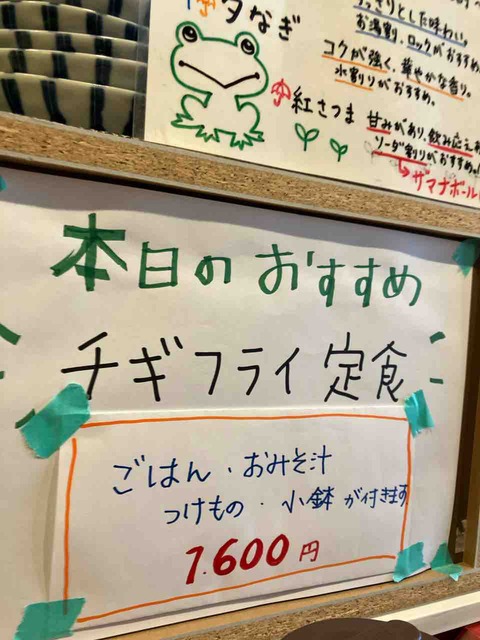 夕なぎ
お湯割、ロックがおすすめ
コクが強く、華やかな香り。
水割りがおすすめ。
紅さつま
甘みがあり、飲み応え
ソーダ割りがおすすめ。
ザマナボール
本日のおすすめ
チギフライ定食
ごはん・おみそ汁
つけもの・小鉢が付きます
1.600円